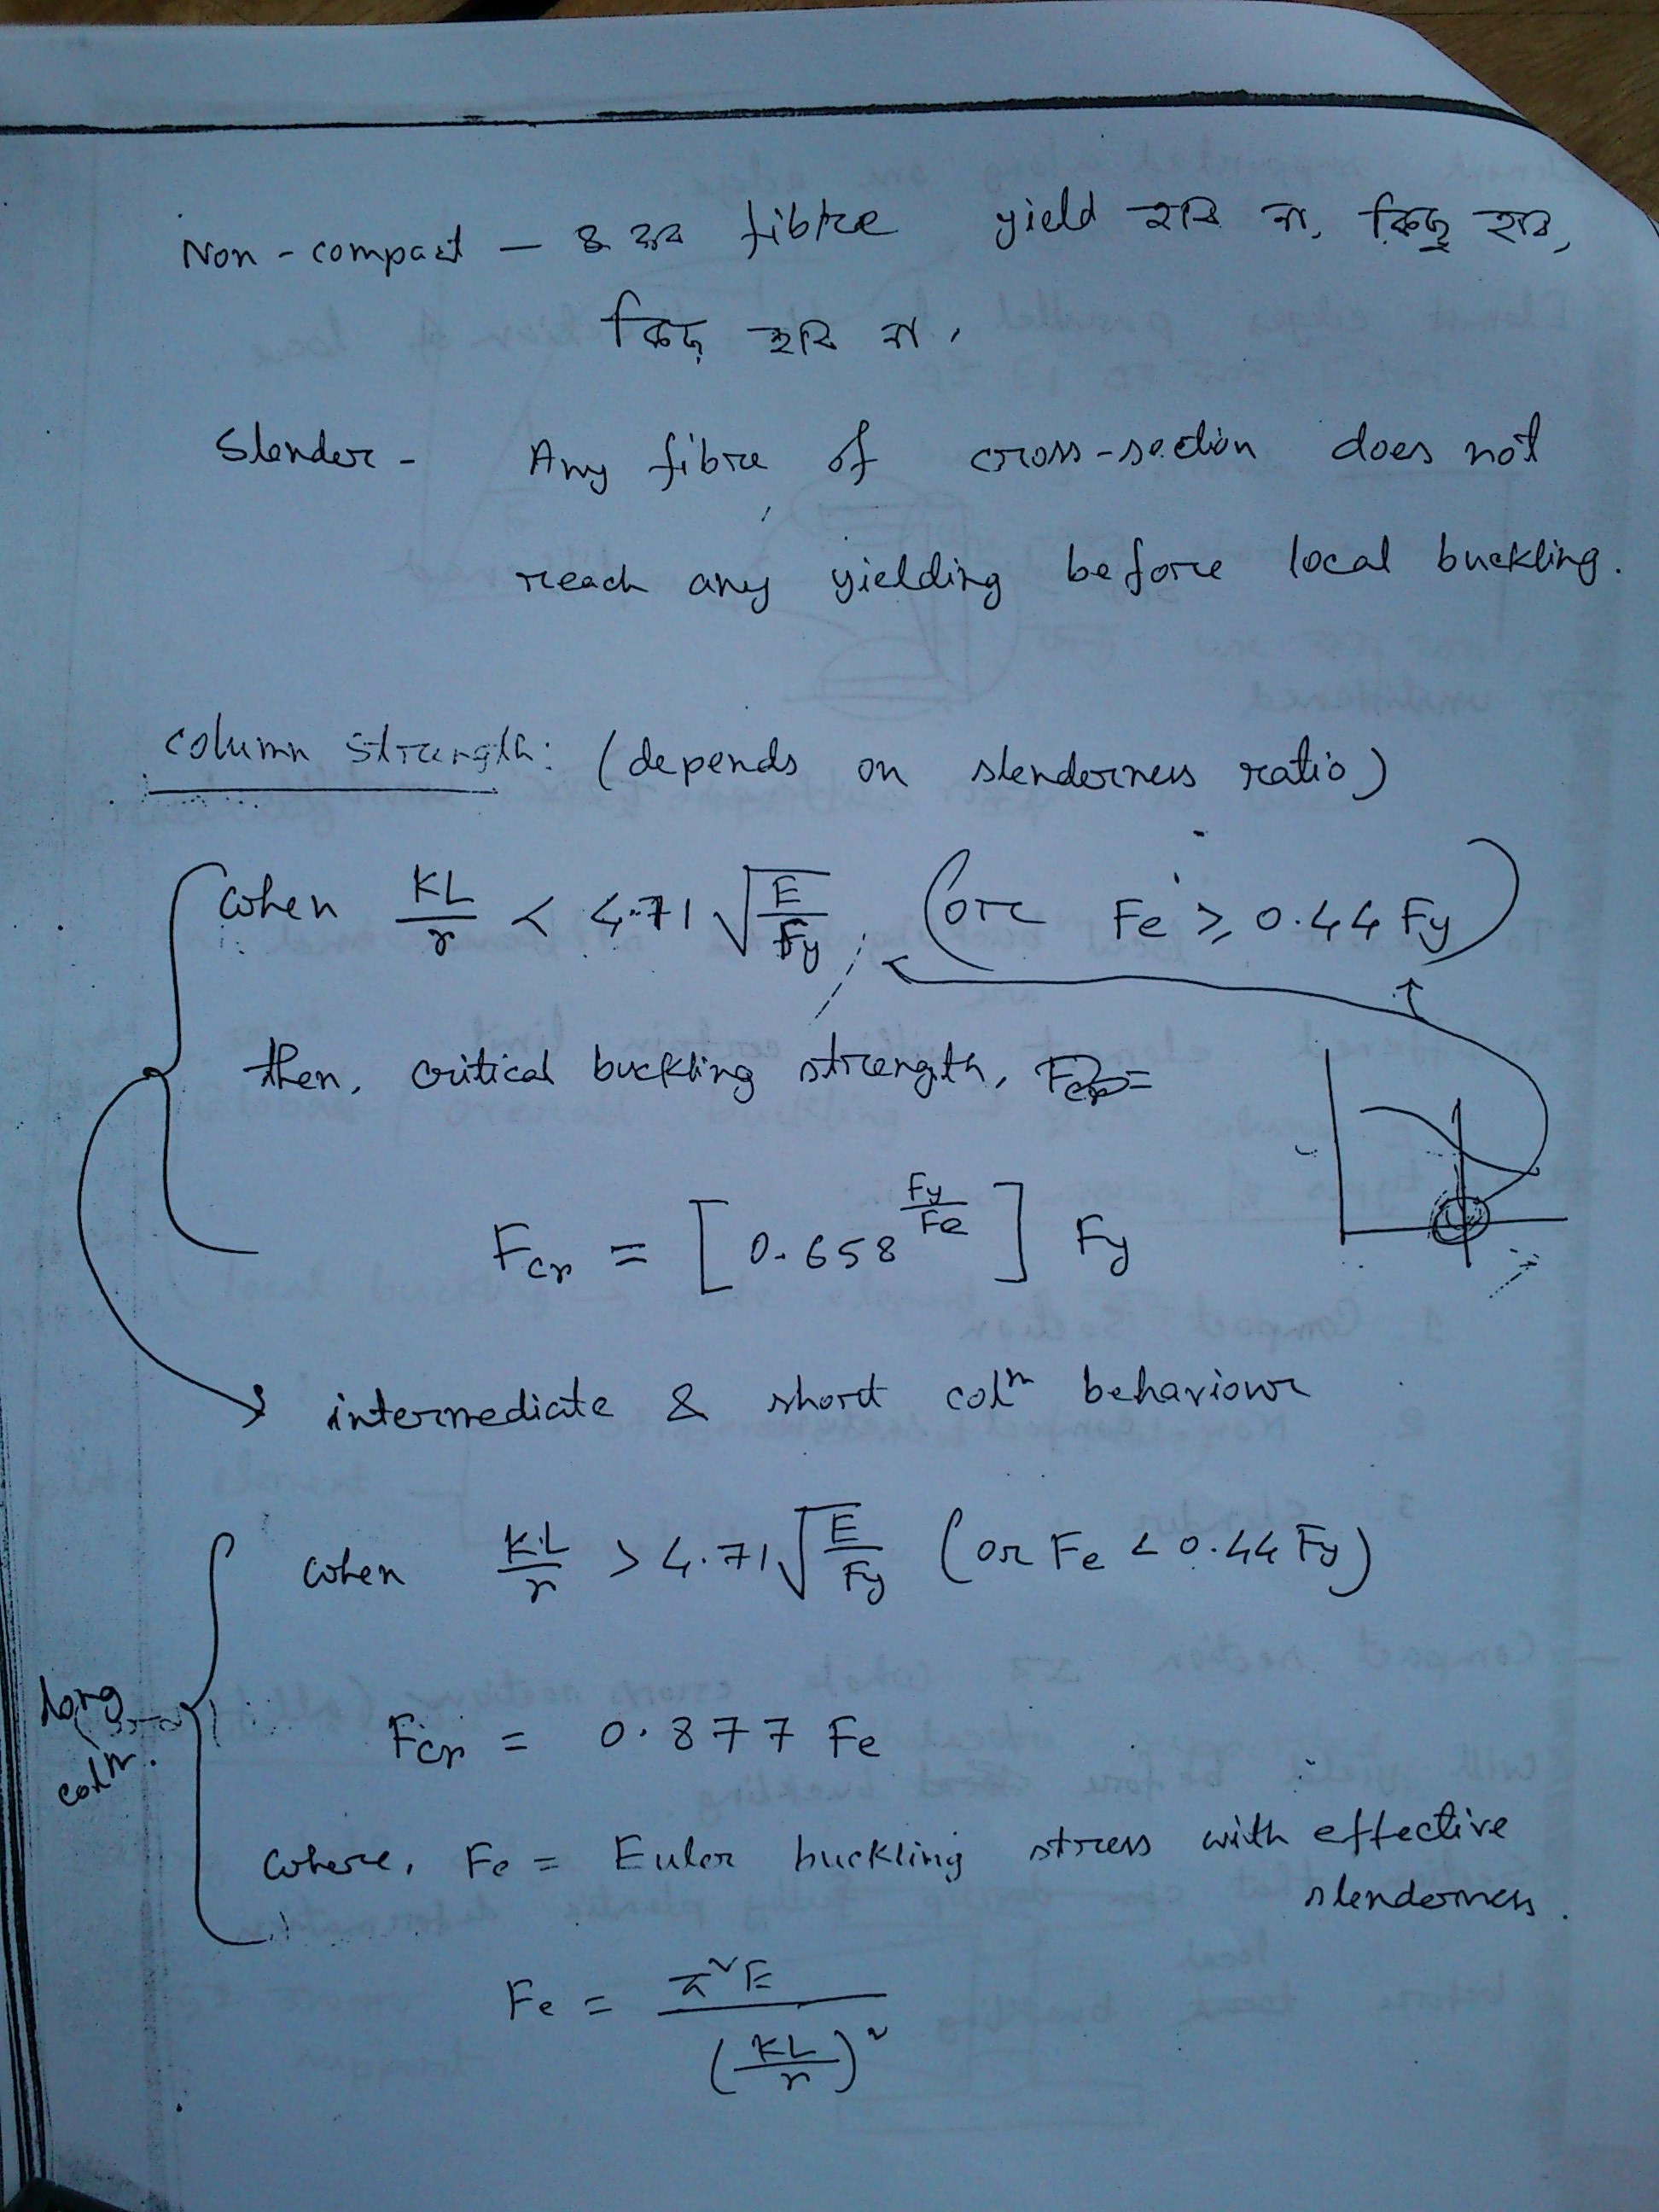 Non-compact — সব fibre yield হবে না, কিছু হবে,
কিছু হবে না,
Slender - Any fibre of cross-section does not
reach any yielding before local buckling.
column strength: (depends on slenderness ratio)
when KL/r < 4.71 √(E/Fy) (or Fe ≥ 0.44 Fy)
then, critical buckling strength,
Fcr = [0.658^(Fy/Fe)] Fy
intermediate & short colⁿ behaviour
when KL/r > 4.71 √(E/Fy) (or Fe < 0.44 Fy)
long
colⁿ.
Fcr = 0.877 Fe
where, Fe = Euler buckling stress with effective
slenderness.
Fe = π²E / (KL/r)²